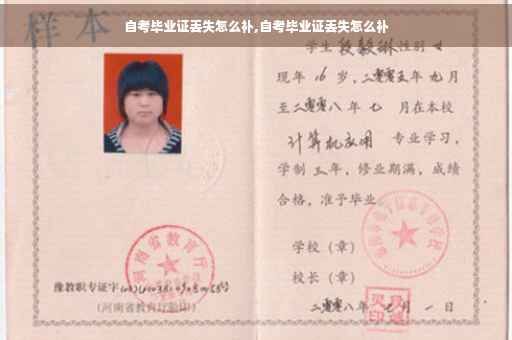 自考毕业证丢失怎么补,自考毕业证丢失怎么补
样本
学生 段毅琳 性别 女
现年 16 岁，二零零五年 九 月
至二零零八 年 七 月在本校
计算机应用 专业学习，
学制 三 年，修业期满，成绩
合格，准予毕业
学校（章）
校长（章）
二零零八年 七 月 一 日
河南省教育厅
豫教职专证字
(河南省教育厅验印)